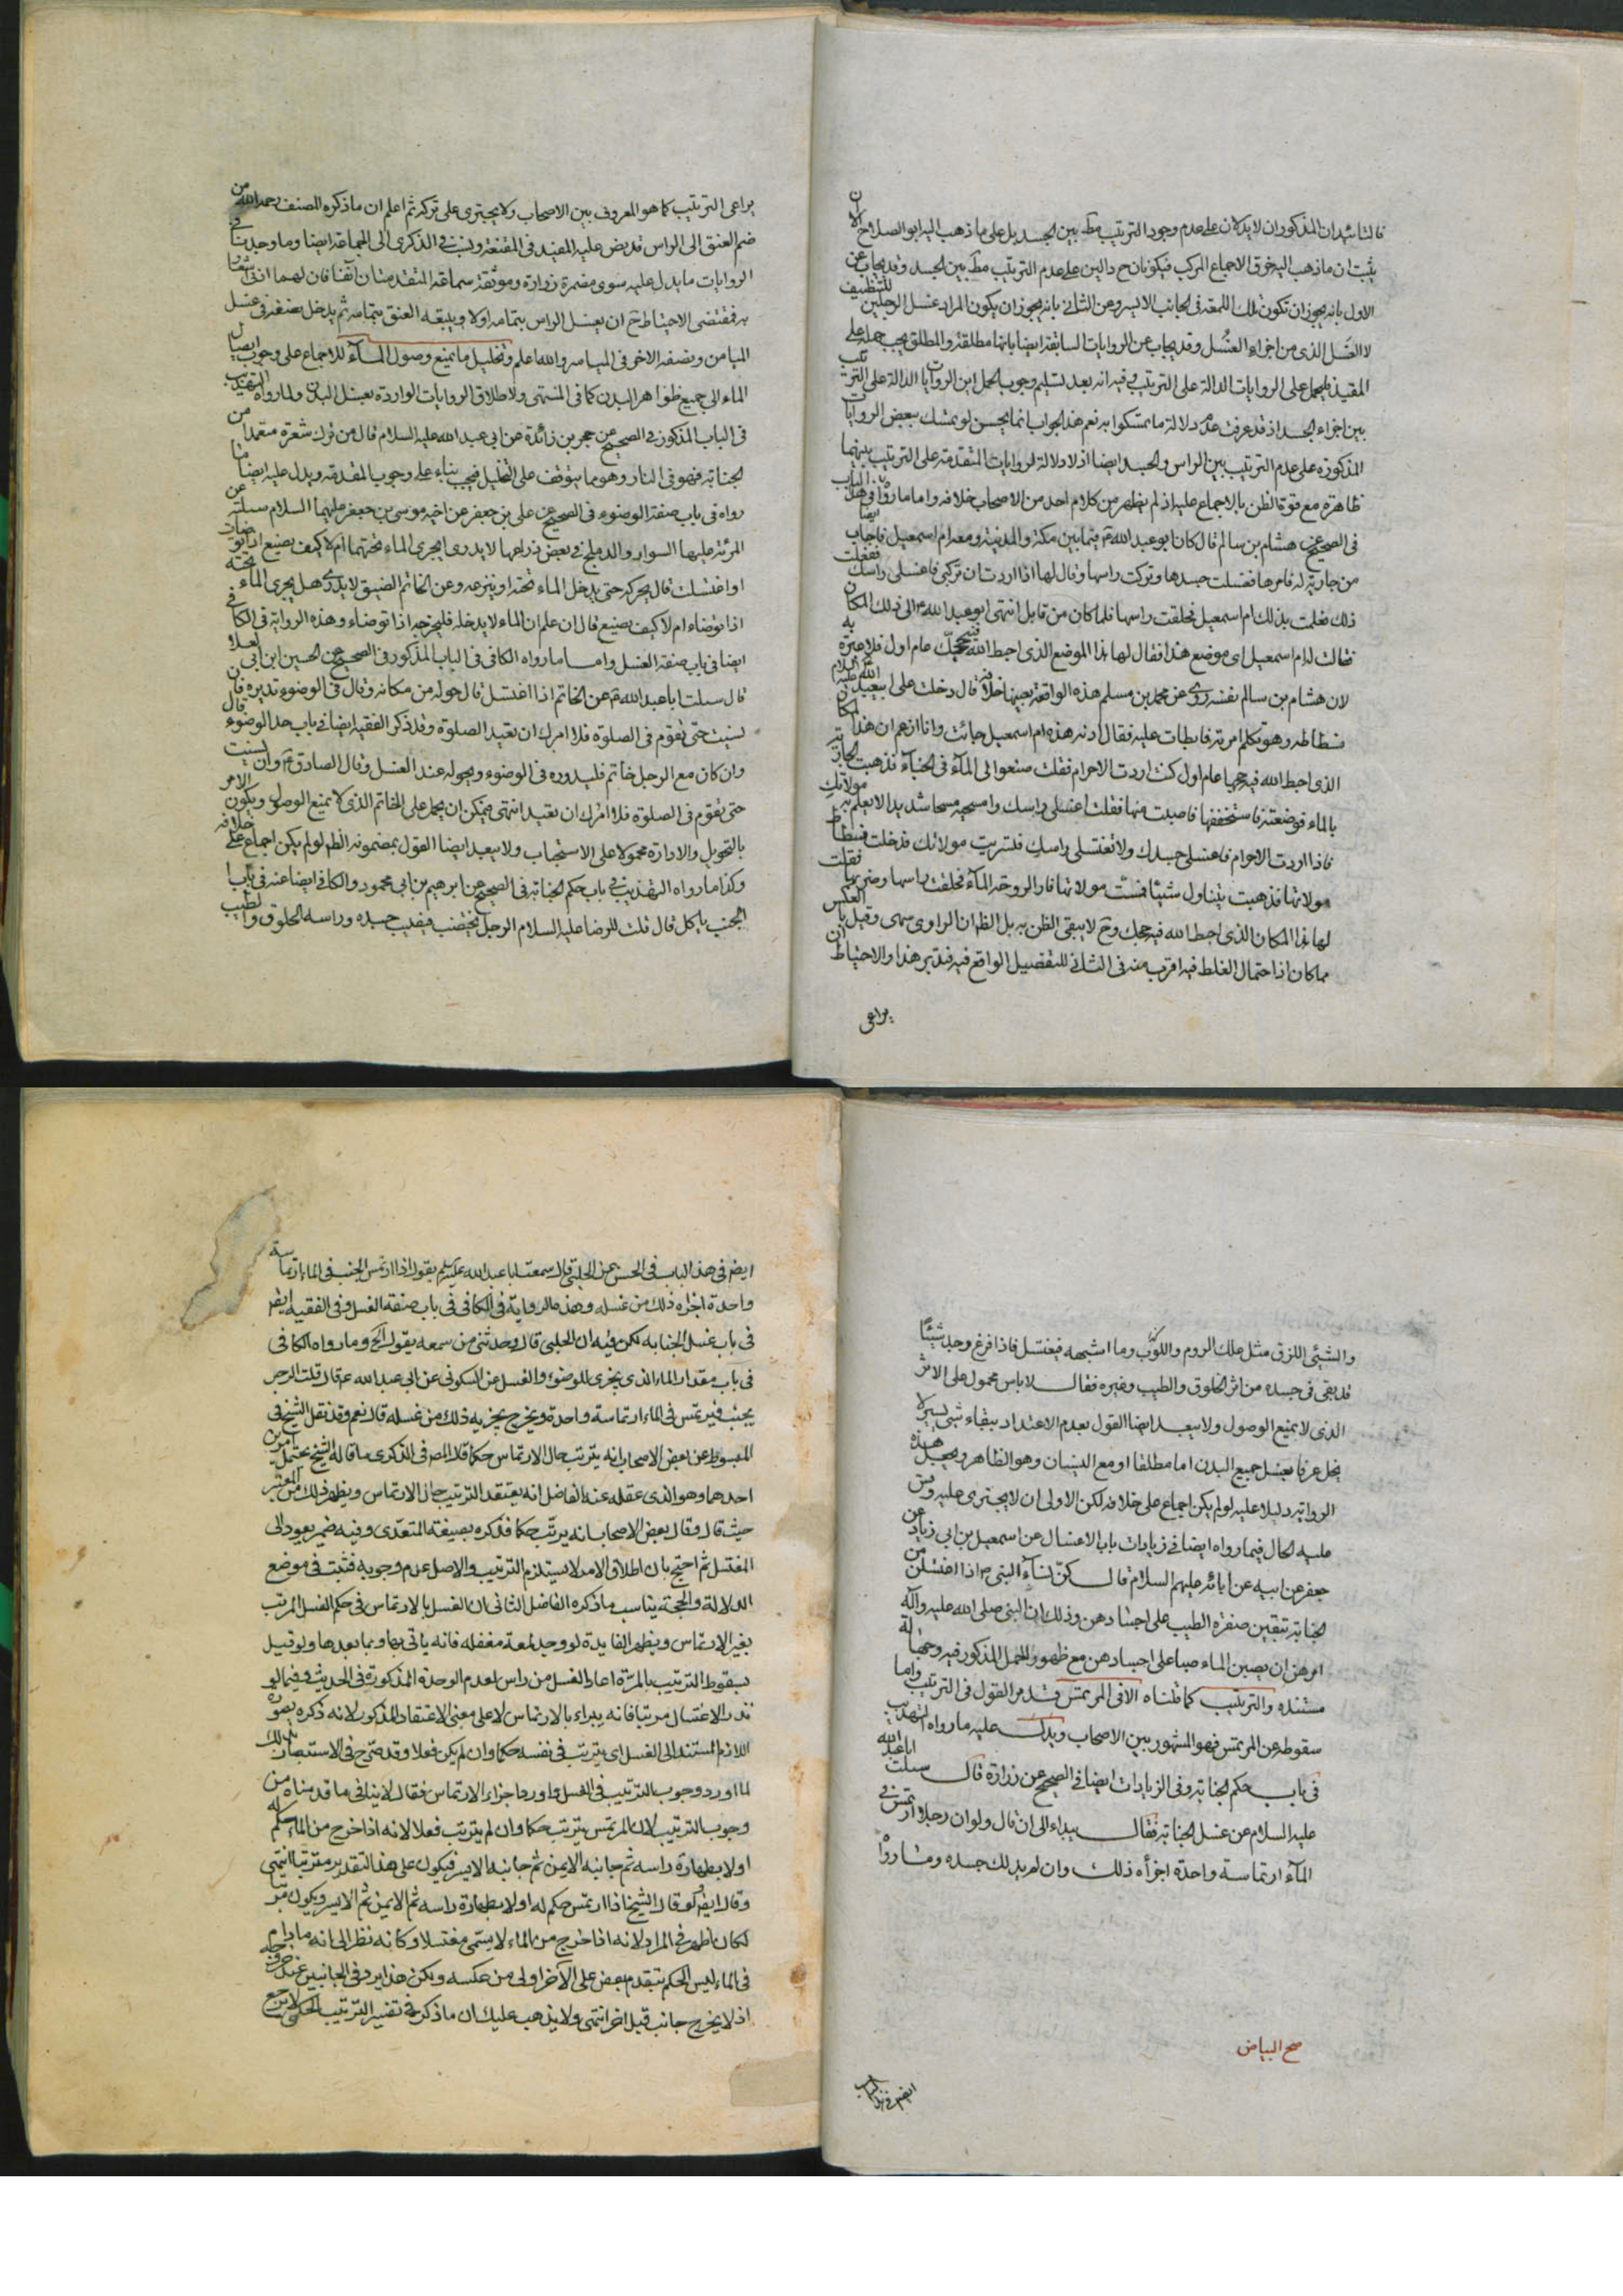 قالتا شهدان المذكوران لا يدلان على عدم وجود الترتيب مط بين الجسد بل على ما ذهب اليه ابو الصلاح الا ان
يثبت ان ما ذهب اليه خرق الاجماع المركب فيكونان ح دالين على عدم الترتيب مط بين الجسد وقد يجاب عن
الاول بانه يجوز ان تكون تلك اللمعة في الجانب الايسر وعن الثاني بانه يجوز ان يكون المراد غسل الرجلين للتنظيف
لا الغسل الذي من اجزاء الغسل وقد يجاب عن الروايات السابقة ايضا بانها مطلقة والمطلق يجب حمله على
المقيد فيحمل على الروايات الدالة على الترتيب وفيه انه بعد تسليم وجوب الحمل اين الروايات الدالة على الترتيب
بين اجزاء الجسد اذ قد عرفت عدم دلالة ما تمسكوا به نعم هذا الجواب انما يحسن لو تمسك ببعض الروايات
المذكورة على عدم الترتيب بين الراس والجسد ايضا اذ لا دلالة لروايات المتقدمة على الترتيب بينهما
ظاهرة مع قوة الظن بالاجماع عليه اذ لم يظهر من كلام احد من الاصحاب خلافه واما ما رواه في هذا الباب
في الصحيح عن هشام بن سالم قال كان ابو عبد الله ع فيما بين مكة والمدينة ومعه ام اسمعيل فاصاب
من جارية له فامرها فغسلت جسدها وتركت راسها وقال لها اذا اردت ان تركبي فاغسلي راسك ففعلت
ذلك فعلمت بذلك ام اسمعيل فحلقت راسها فلما كان من قابل انتهى ابو عبد الله ع الى ذلك المكان
فقالت له ام اسمعيل اي موضع هذا فقال لها هذا الموضع الذي احبط الله فيه حجك عام اول فلا عبرة به
لان هشام بن سالم نفسه روى عن محمد بن مسلم هذه الواقعة بعينها خلافه قال دخلت على ابي عبد الله عليه السلام
فسطاطه وهو يكلم امرية فابطات عليه فقال ادنه هذه ام اسمعيل جائت وانا ازعم ان هذا المكان
الذي احبط الله فيه حجها عام اول كنت اردت الاحرام فقلت ضعوا لى المآء في الخبآء فذهبت الجارية
بالماء فوضعته فاستخففتها فاصبت منها فقلت اغسلي راسك وامسحيه مسحا شديدا لا يعلم به مولاتك
فاذا اردت الاحرام فاغسلي جسدك ولا تغسلي راسك فتستريب مولاتك فدخلت فسطاط
مولاتها فذهبت يتناول شيئا فمست مولاتها فاذا لزوجة المآء فحلقت راسها وضربتها فقلت
لها هذا المكان الذي احبط الله فيه حجك وح لا يبقى الظن به بل الظ ان الراوي سهى وقيل بالعكس
مما كان اذ احتمال الغلط فيه اقرب منه في الثاني للتفصيل الواقع فيه فتدبر هذا والاحتياط ان
يراعى
يراعى الترتيب كما هو المعروف بين الاصحاب ولا يجترى على تركه ثم اعلم ان ما ذكره المصنف رحمه الله من
ضم العنق الى الراس قد نص عليه المفيد في المقنعة ونسبه في الذكرى الى الجماعة ايضا وما وجدنا في
الروايات ما يدل عليه سوى مضمرة زرارة وموثقة سماعة المتقدمتان آنفا فان لهما
به فمقتضى الاحتياط ح ان يغسل الراس بتمامه اولا ويتبعه العنق بتمامه ثم يدخل نصفه في غسل
الميامن ونصفه الاخر في المياسر والله اعلم وتخليل ما يمنع وصول المآء للاجماع على وجوب ايصال
الماء الى جميع ظواهر البدن كما في المنتهى ولاطلاق الروايات الواردة بغسل البدن ولما رواه التهذيب
في الباب المذكور في الصحيح عن حجر بن زائدة عن ابي عبد الله عليه السلام قال من ترك شعرة متعمدا من
الجنابة فهو في النار وهو مما يتوقف على التخليل فيجب بناء على وجوب المقدمة ويدل عليه ايضا ما
رواه في باب صفة الوضوء في الصحيح عن علي بن جعفر عن اخيه موسى بن جعفر عليهما السلام سئلته عن
المرئة عليها السوار والدملج في بعض ذراعها لا يدري ايجري الماء تحتهما ام لا كيف يصنع اذا توضات
او اغتسلت قال يحركه حتى يدخل الماء تحته او ينزعه وعن الخاتم الضيق لا يدري هل يجري المآء تحته
اذا توضاء ام لا كيف يصنع قال ان علم ان الماء لا يدخله فليخرجه اذا توضاء وهذه الرواية في الكافي
ايضا في باب صفة الغسل واما ما رواه الكافي في الباب المذكور في الصحيح عن الحسين ابن ابي العلا
قال سئلت ابا عبد الله ع عن الخاتم اذا اغتسل قال حوله من مكانه وقال في الوضوء تديره فان
نسيت حتى تقوم في الصلوة فلا امرك ان تعيد الصلوة وقد ذكر الفقيه ايضا في باب حد الوضوء قال
وان كان مع الرجل خاتم فليدوره في الوضوء ويحوله عند الغسل وقال الصادق ع وان نسيت
حتى تقوم في الصلوة فلا امرك ان تعيد انتهى فيمكن ان يحمل على الخاتم الذي لا يمنع الوصول ويكون الامر
بالتحويل والادارة محمولا على الاستحباب ولا يبعد ايضا القول بمضمونه الظ لو لم يكن اجماع على خلافه
وكذا ما رواه التهذيب في باب حكم الجنابة في الصحيح عن ابرهيم بن ابي محمود والكافي ايضا عنه في باب
الجنب ياكل قال قلت للرضا عليه السلام الرجل يجنب فيصيب جسده وراسه الخلوق والطيب
والشيئ اللزق مثل علك الروم والكوّ وما اشبهه فيغتسل فاذا فرغ وجد شيئا
قد بقى في جسده من اثر الخلوق والطيب وغيره فقال لا باس محمول على الاثر
الذي لا يمنع الوصول ولا يبعد ايضا القول بعدم الاعتداد ببقاء شيئ يسير لا
يخل عرفا بغسل جميع البدن اما مطلقا او مع النسيان وهو الظاهر ويجعل هذه
الرواية دليلا عليه لو لم يكن اجماع على خلافه لكن الاولى ان لا يجترى عليه وقس
عليه الحال فيما رواه ايضا في زيادات باب الاغسال عن اسمعيل بن ابي زياد عن
جعفر عن ابيه عن ابائه عليهم السلام قال كنّ نسآء النبى ص اذا اغتسلن من
الجنابة تبقين صفرة الطيب على اجسادهن وذلك ان النبى صلى الله عليه وآله
امرهن ان يصببن الماء صبا على اجسادهن مع ظهور المحمل المذكور فيه
مستنده والترتيب كما قلناه الا في المرتمس قد مر القول في الترتيب واما
سقوطه عن المرتمس فهو المشهور بين الاصحاب ويدل عليه ما رواه التهذيب
في باب حكم الجنابة وفي الزيادات ايضا في الصحيح عن زرارة قال سئلت ابا عبد الله
عليه السلام عن غسل الجنابة فقال يبداء الى ان قال ولو ان رجلا ارتمس في
المآء ارتماسة واحدة اجزأه ذلك وان لم يدلك جسده وما رواه
صح البياض
ايضم في هذا الباب
ايضم في هذا الباب في الحسن عن الحلبي قال سمعت ابا عبد الله عليه السلام يقول اذا ارتمس الجنب في الماء ارتماسة
واحدة اجزاه ذلك من غسله وهذه الرواية في الكافي في باب صفة الغسل وفي الفقيه ايضم
في باب غسل الجنابه لكن فيه ان الحلبي قال وحدثني من سمعه يقول الخ وما رواه الكافي
في باب مقدار الماء الذي يجزي للوضوء والغسل عن السكوني عن ابي عبد الله ع قال قلت الرجل
يجنب فيرتمس في الماء ارتماسة واحدة ويخرج يجزيه ذلك من غسله قال نعم وقد نقل الشيخ في
المبسوط عن بعض الاصحاب انه يترتب حال الارتماس حكما قال المص في الذكرى ما قاله الشيخ يحتمل امرين
احدهما وهو الذي عقله عنه الفاضل انه يعتقد الترتيب حال الارتماس ويظهر ذلك من المعتبر
حيث قال وقال بعض الاصحاب انه يرتب حكما فذكره بصيغة المتعدّي وفيه ضمير يعود الى
المغتسل ثم احتج بان اطلاق الامر لا يستلزم الترتيب والاصل عدم وجوبه فثبت في موضع
الدلالة والحجة يناسب ما ذكره الفاضل الثاني ان الغسل بالارتماس في حكم الغسل المرتب
بغير الارتماس ويظهر الفايدة لو وجد لمعة مغفله فانه ياتي بها وبما بعدها ولو قيل
بسقوط الترتيب بالمرّة اعاد الغسل من راس لعدم الوحدة المذكورة في الحديث وفيما لو
نذر الاغتسال مرتبا فانه يبراء بالارتماس لا على معنى الاعتقاد المذكور لانه ذكره بصورة
اللازم المستند الى الغسل اي يترتب في نفسه حكما وان لم يكن فعلا وقد صرّح في الاستبصار بذلك
لما اورد وجوب الترتيب في الغسل واورد اجزاء الارتماس فقال لا ينافي ما قدمناه من
وجوب الترتيب لان المرتمس يترتب حكما وان لم يترتب فعلا لانه اذا خرج من الماء حكم له
اولا بطهارة راسه ثم جانبه الايمن ثم جانبه الايسر فيكون على هذا التقدير مترتبا انتهى
وقال ايضم لو قال الشيخ اذا ارتمس حكم له اولا بطهارة راسه ثم الايمن ثم الايسر ويكون مرتبا
لكان اظهر في المراد لانه اذا خرج من الماء لا يسمّى مغتسلا وكانه نظر الى انه ما دام
في الماء ليس الحكم بتقدم بعض على الآخر اولى من عكسه ولكن هذا يرد في الجانبين عند خروجه
اذ لا يخرج جانب قبل اخر انتهى ولا يذهب عليك ان ما ذكره في تفسير الترتيب الحكمي لا يرجع